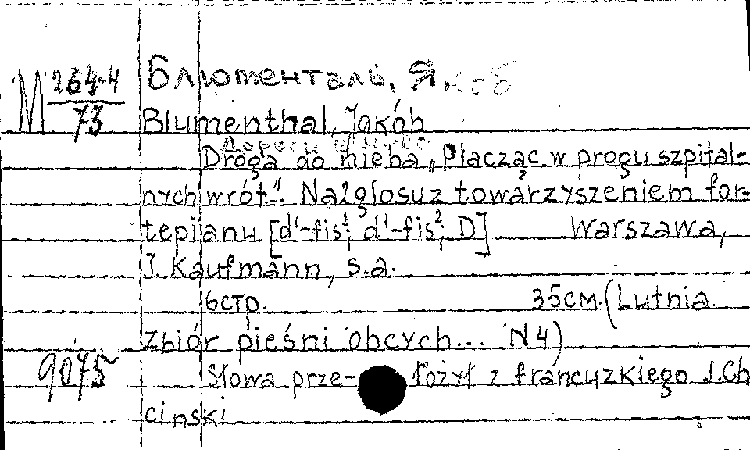 М 264-4
73
Блюменталь, Якоб
Blumenthal, Jakób
Droga do nieba „Placząc w progu szpital-
nych wrót". Na 2 głosu z towarzyszeniem for-
tepianu [d¹-fis¹; d¹-fis²; D] Warszawa,
J. Kaufmann, s.a.
6 стр. 35 см. (Lutnia.
Zbiór pieśni obcych... N 4)
9075
Słowa prze- łożył z francuzkiego J. Ch
cinski